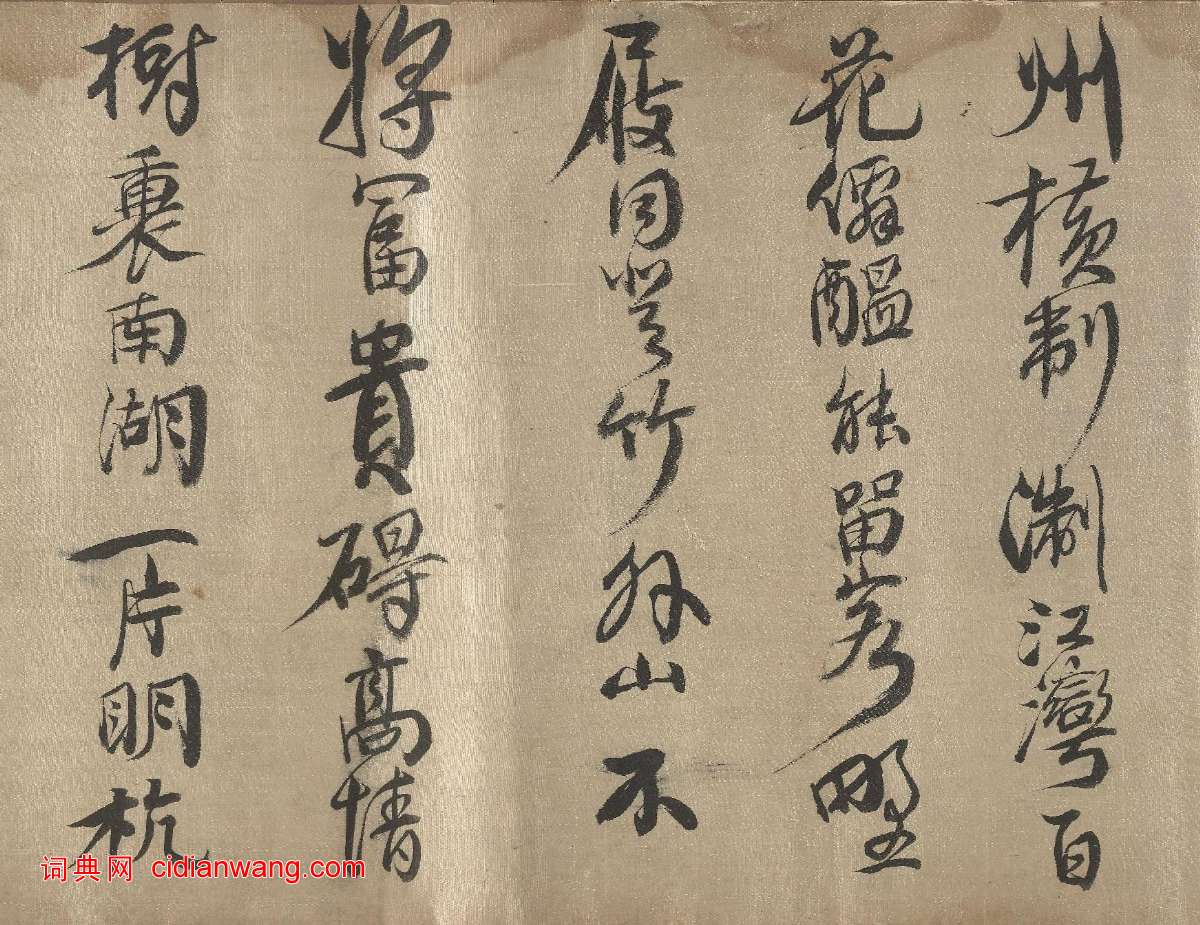 州橫制淛江灣百
花醞能留客野
屐同登竹外山不
將冨貴碍高情
樹裏南湖一片明杭
词典网 cidianwang.com